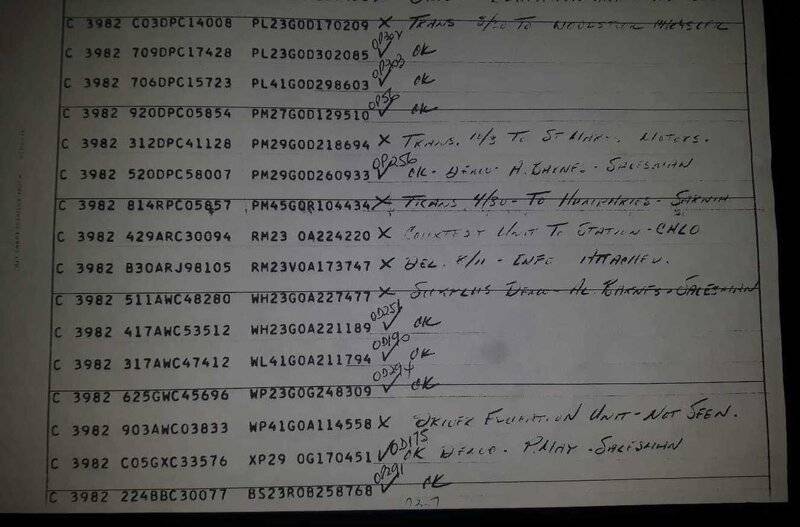 C 3982 C03DPC14008 PL23G0D170209 X TRANS 3/20 TO
C 3982 709DPC17428 PL23G0D302085 OD302 ✓ OK
C 3982 706DPC15723 PL41G0D298603 OD303 ✓ OK
C 3982 920DPC05854 PM27G0D129510 OD56 ✓ OK
C 3982 312DPC41128 PM29G0D218694 X TRANS. 11/3 TO ST MARY. MOTORS.
C 3982 520DPC58007 PM29G0D260933 OD256 ✓ OK - DEMO - A. BARNES - SALESMAN
C 3982 814RPC05857 PM45G0R104434 X TRANS 4/30 - TO HUMPHRIES - SARNIA
C 3982 429ARC30094 RM23 0A224220 X COURTESY UNIT TO STATION - CHLO
C 3982 B30ARJ98105 RM23V0A173747 X DEL. 8/11 - INFO ATTACHED.
C 3982 511AWC48280 WH23G0A227477 X SURPLUS DEMO - AL. BARNES - SALESMAN
C 3982 417AWC53512 WH23G0A221189 OD256 ✓ OK
C 3982 317AWC47412 WL41G0A211794 OD190 ✓ OK
C 3982 625GWC45696 WP23G0G248309 ✓ OK
C 3982 903AWC03833 WP41G0A114558 X DRIVER EDUCATION UNIT - NOT SEEN.
C 3982 C05GXC33576 XP29 0G170451 OD175 ✓ OK DEMO - P. MAY - SALESMAN
C 3982 224BBC30077 BS23R0B258768 OD291 ✓ OK